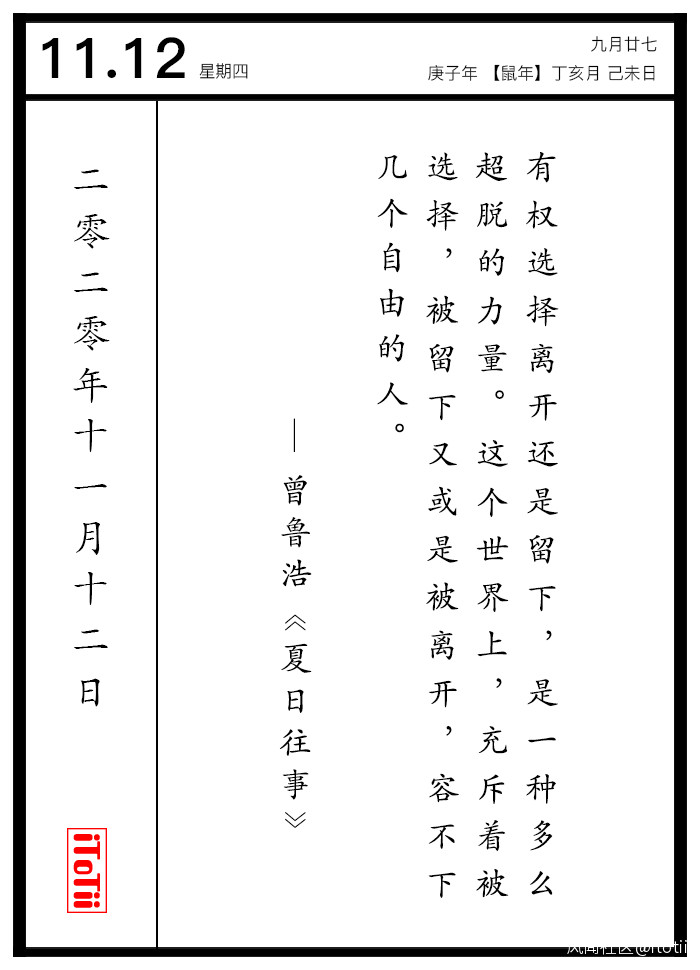 11.12 星期四
九月廿七
庚子年 【鼠年】丁亥月 己未日
有权选择离开还是留下，是一种多么
超脱的力量。这个世界上，充斥着被
选择，被留下又或是被离开，容不下
几个自由的人。
— 曾鲁浩《夏日往事》
二零二零年十一月十二日
iToTii
风闻社区@itotii